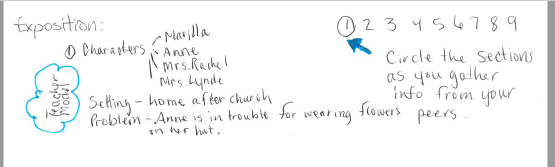 Exposition:
① Characters
Marilla
Anne
Mrs. Rachel
Mrs. Lynde
Teacher
Model
Setting - home after church
Problem - Anne is in trouble for wearing flowers
on her hat.
① 2 3 4 5 6 7 8 9
Circle the sections
as you gather
info from your
peers.